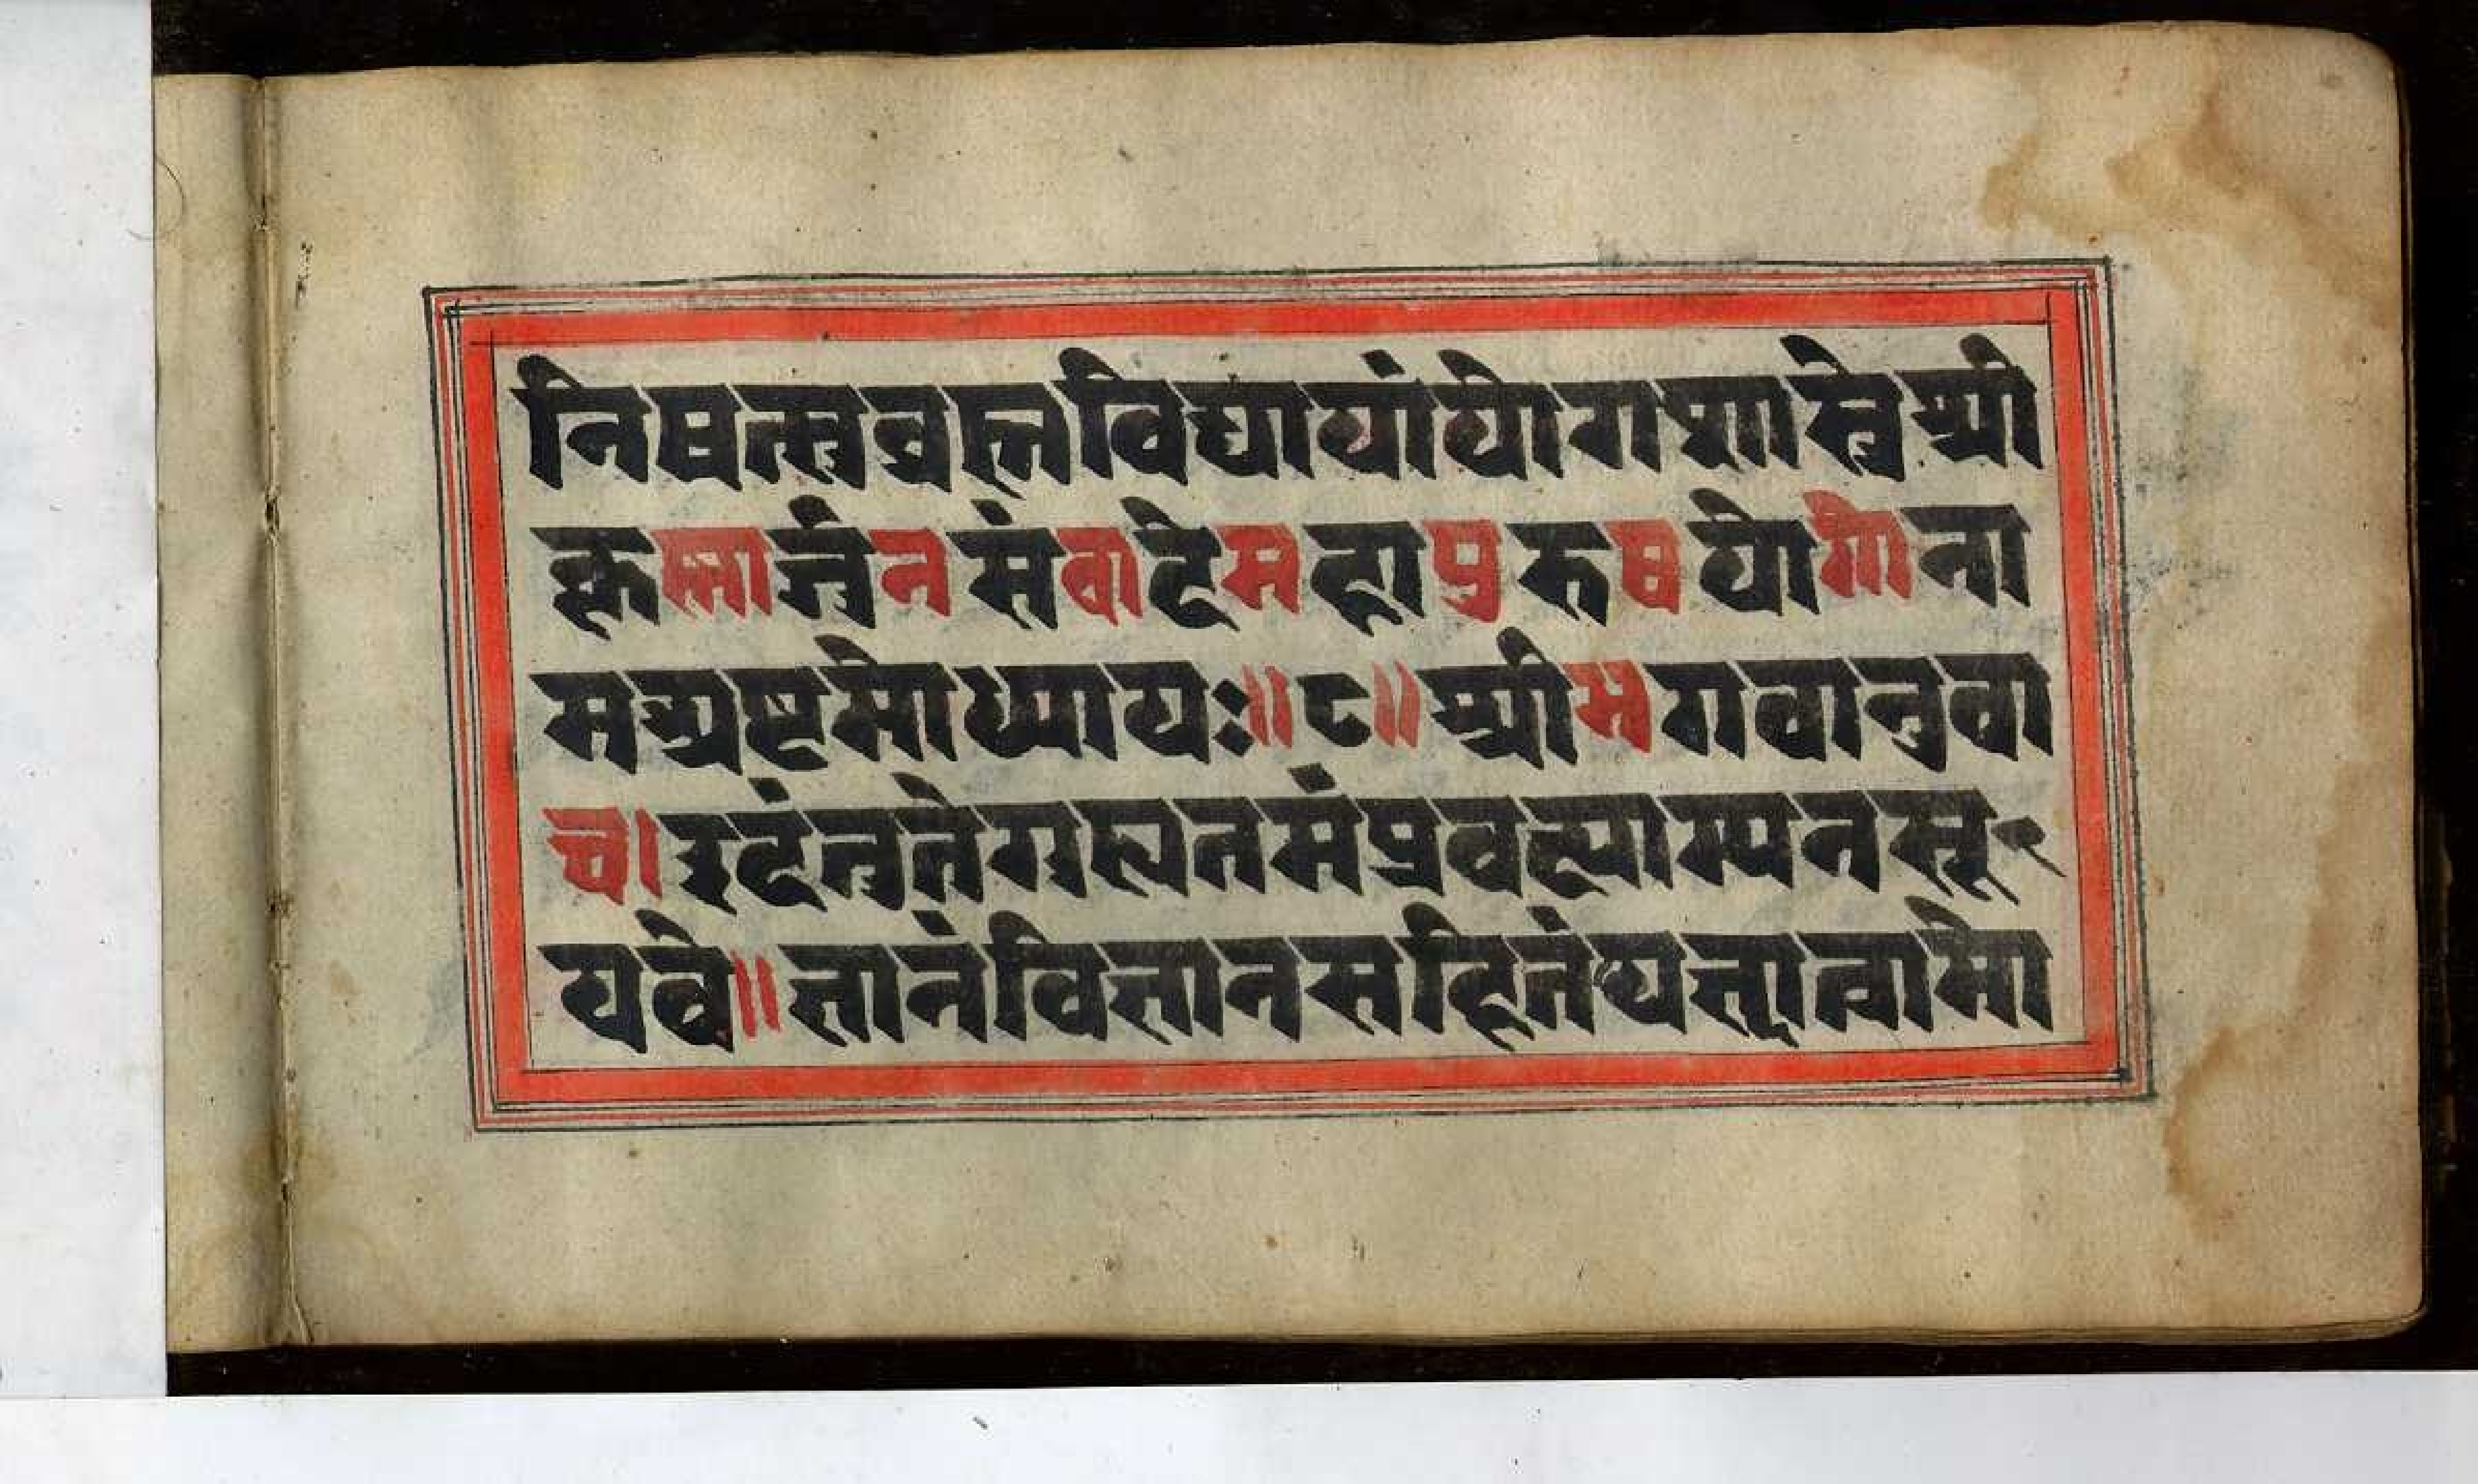 निषत्सुब्रह्मविद्यायांयोगशास्त्रेश्री
कृस्मार्जुनसंवादेमहापुरुषयोगोना
मअष्टमोध्यायः॥८॥श्रीभगवानुवा
च।इदंतुतेगुह्यतमंप्रवक्ष्याम्यनसू-
यवे॥ज्ञानंविज्ञानसहितंयज्ज्ञात्वामो